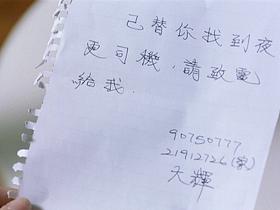 已替你找到夜
更司機，請致電
給我.
90750777
21912726(家)
天輝